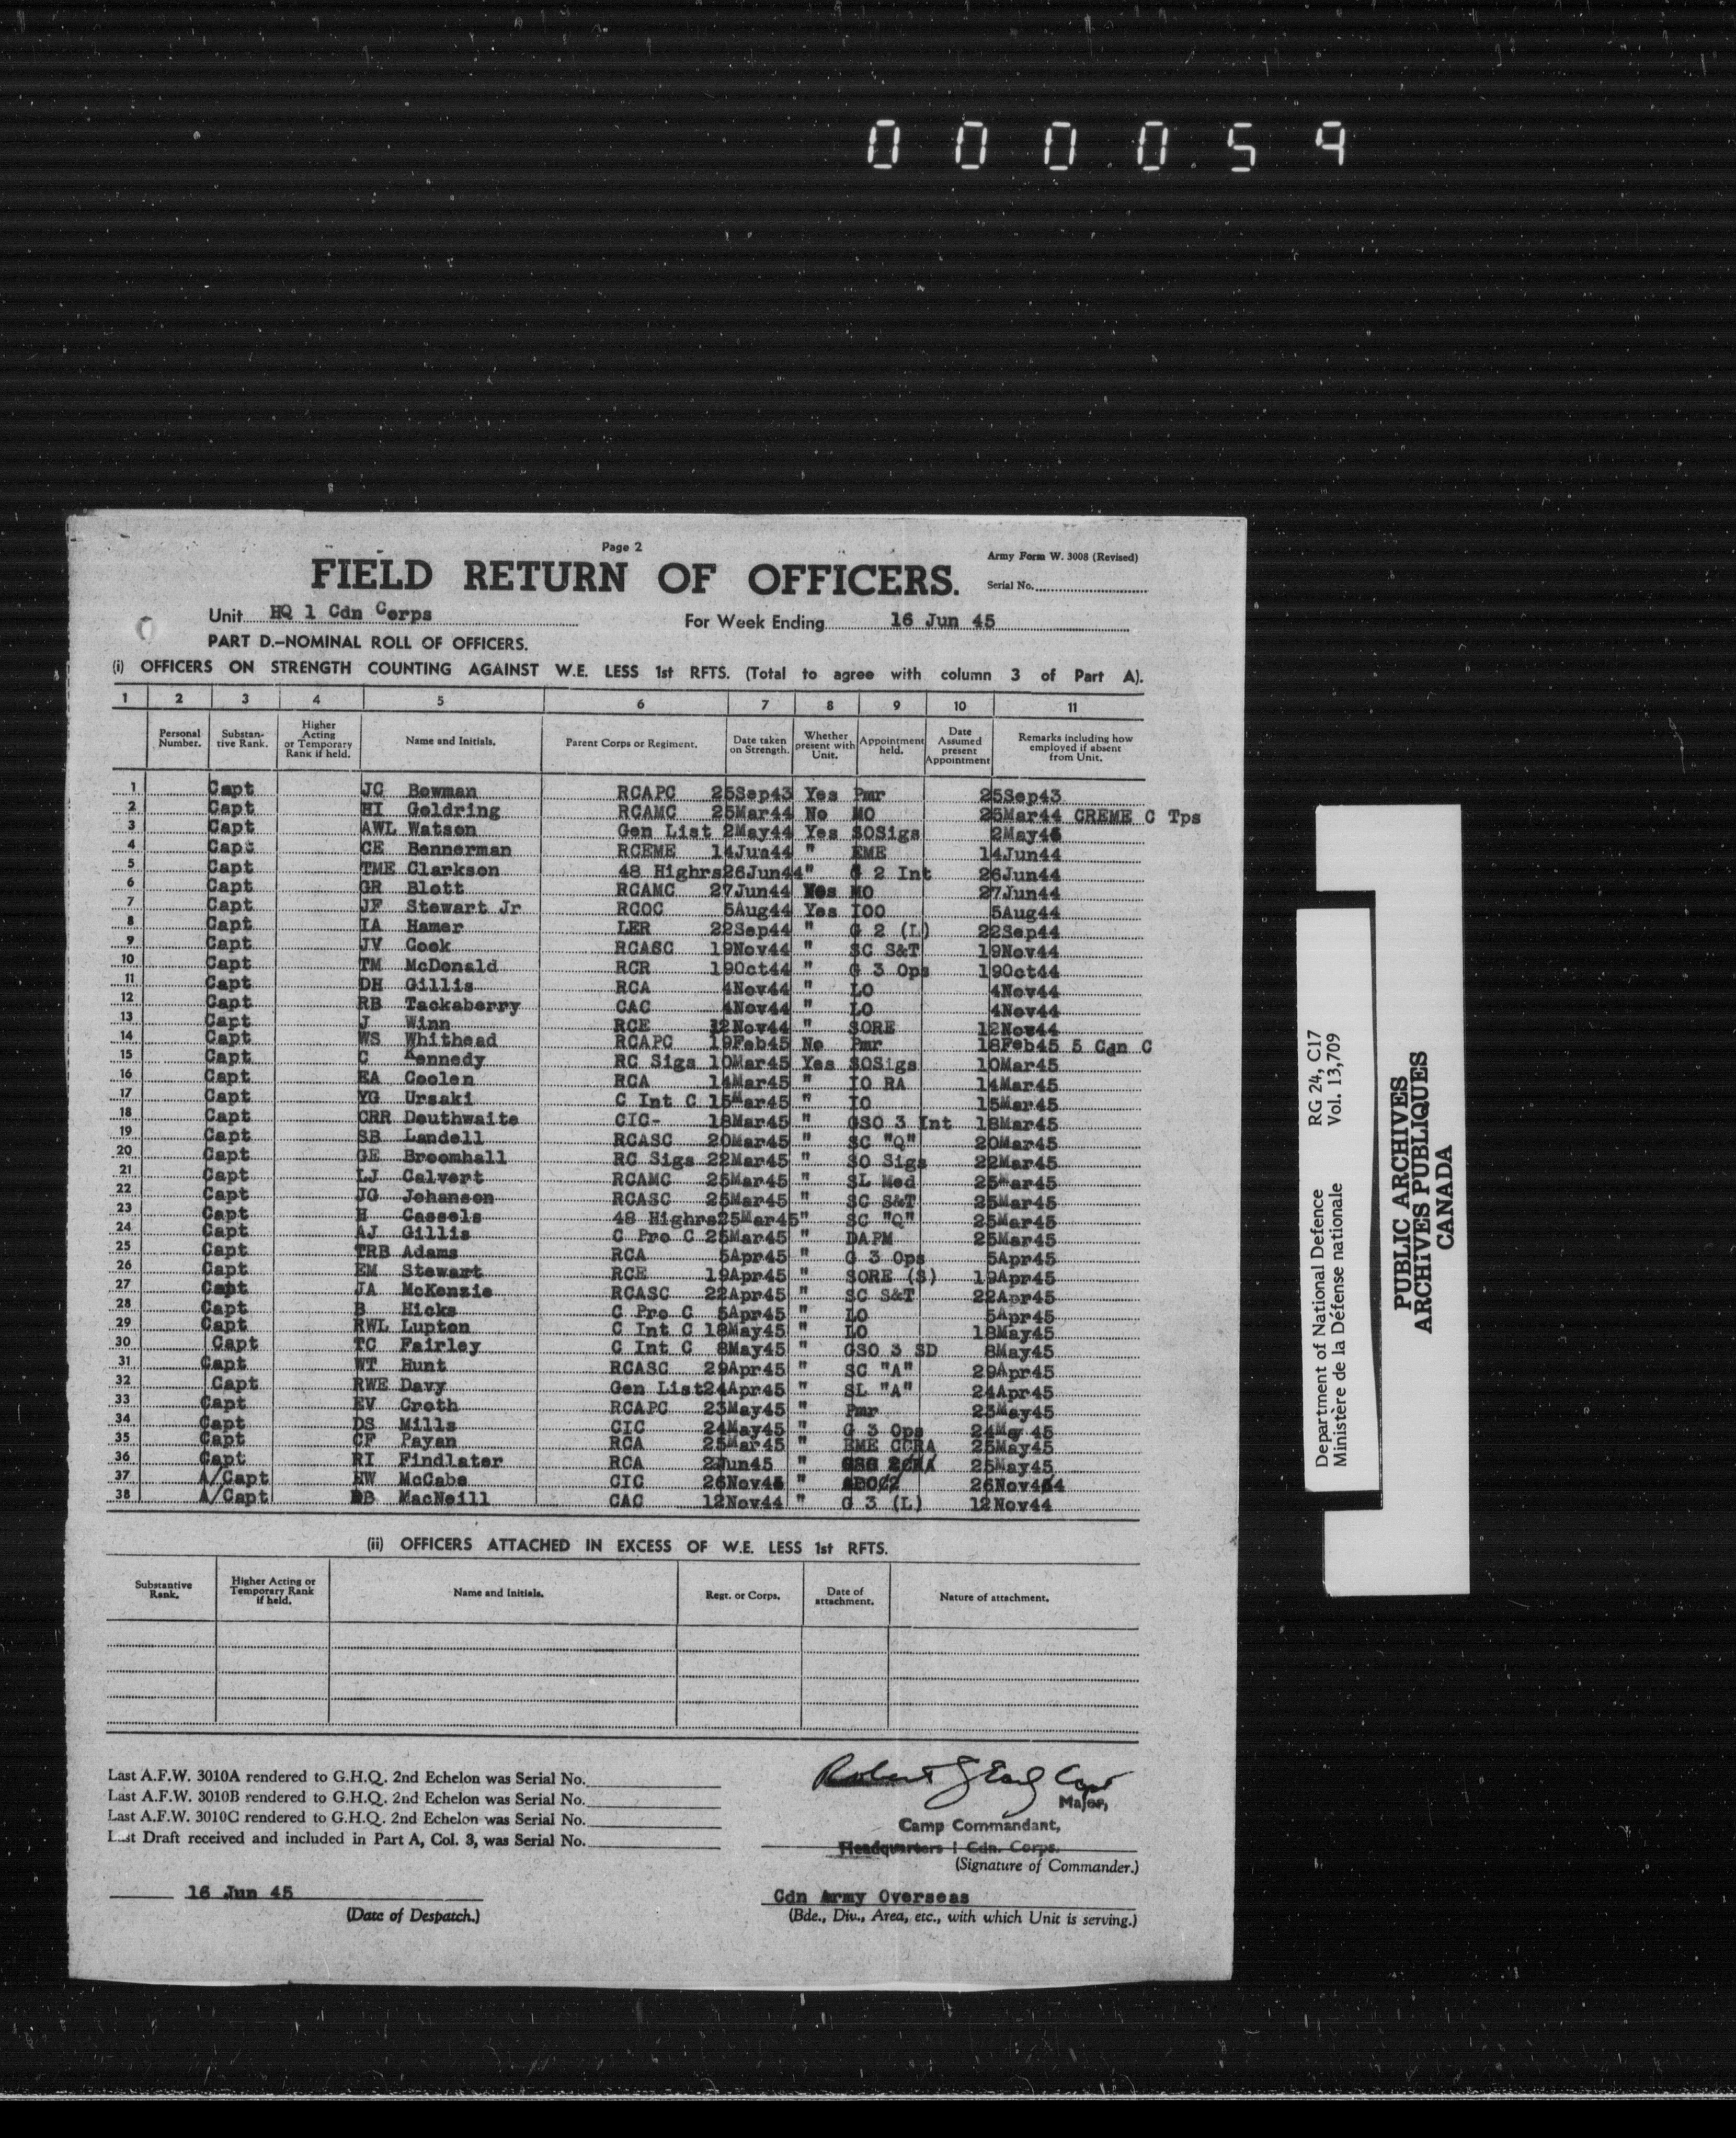 000059
Page 2
Army Form W. 3008 (Revised)
FIELD RETURN OF OFFICERS.
Serial No.
Unit HQ 1 Cdn Corps
For Week Ending 16 Jun 45
PART D.—NOMINAL ROLL OF OFFICERS.
(i) OFFICERS ON STRENGTH COUNTING AGAINST W.E. LESS 1st RFTS. (Total to agree with column 3 of Part A).
1 2 3 4 5 6 7 8 9 10 11
Personal Number. Substantive Rank. Higher Acting or Temporary Rank if held. Name and Initials. Parent Corps or Regiment. Date taken on Strength. Whether present with Unit. Appointment held. Date Assumed present Appointment Remarks including how employed if absent from Unit.
1 Capt JC Bowman RCAPC 25Sep43 Yes Pmr 25Sep43
2 Capt HI Goldring RCAMC 25Mar44 No MO 25Mar44 CREME C Tps
3 Capt AWL Watson Gen List 2May44 Yes SOSigs 2May44
4 Capt CE Bennerman RCEME 14Jun44 " EME 14Jun44
5 Capt TME Clarkson 48 Highrs 26Jun44 " G 2 Int 26Jun44
6 Capt GR Blott RCAMC 27Jun44 Yes MO 27Jun44
7 Capt JF Stewart Jr RCOC 5Aug44 Yes IOO 5Aug44
8 Capt IA Hamer LER 22Sep44 " G 2 (L) 22Sep44
9 Capt JV Cook RCASC 19Nov44 " SC S&T 19Nov44
10 Capt TM McDonald RCR 19Oct44 " G 3 Ops 19Oct44
11 Capt DH Gillis RCA 4Nov44 " LO 4Nov44
12 Capt RB Tackaberry CAC 4Nov44 " LO 4Nov44
13 Capt J Winn RCE 12Nov44 " SORE 12Nov44
14 Capt WS Whithead RCAPC 19Feb45 No Pmr 18Feb45 5 Cdn C
15 Capt C Kennedy RC Sigs 10Mar45 Yes SOSigs 10Mar45
16 Capt EA Coolen RCA 14Mar45 " IO RA 14Mar45
17 Capt YG Ursaki C Int C 15Mar45 " IO 15Mar45
18 Capt CRR Douthwaite CIC- 18Mar45 " GSO 3 Int 18Mar45
19 Capt SB Landell RCASC 20Mar45 " SC "Q" 20Mar45
20 Capt GE Broomhall RC Sigs 22Mar45 " SO Sigs 22Mar45
21 Capt LJ Calvert RCAMC 25Mar45 " SL Med 25Mar45
22 Capt JG Johanson RCASC 25Mar45 " SC S&T 25Mar45
23 Capt H Cassels 48 Highrs 25Mar45 " SC "Q" 25Mar45
24 Capt AJ Gillis C Pro C 25Mar45 " DAPM 25Mar45
25 Capt TRB Adams RCA 5Apr45 " G 3 Ops 5Apr45
26 Capt EM Stewart RCE 19Apr45 " SORE (S) 19Apr45
27 Capt JA McKenzie RCASC 22Apr45 " SC S&T 22Apr45
28 Capt B Hicks C Pro C 5Apr45 " LO 5Apr45
29 Capt RWL Lupton C Int C 18May45 " LO 18May45
30 Capt TC Fairley C Int C 8May45 " GSO 3 SD 8May45
31 Capt WT Hunt RCASC 29Apr45 " SC "A" 29Apr45
32 Capt RWE Davy Gen List 24Apr45 " SL "A" 24Apr45
33 Capt EV Croth RCAPC 23May45 " Pmr 23May45
34 Capt DS Mills CIC 24May45 " G 3 Ops 24May 45
35 Capt CF Payan RCA 25Mar45 " EME CCRA 25May45
36 Capt RI Findlater RCA 2Jun45 " 25May45
37 A/Capt EW McCabe CIC 26Nov45 " 26Nov
38 A/Capt DB MacNeill CAC 12Nov44 " G 3 (L) 12Nov44
(ii) OFFICERS ATTACHED IN EXCESS OF W.E. LESS 1st RFTS.
Substantive Rank. Higher Acting or Temporary Rank if held. Name and Initials. Regt. or Corps. Date of attachment. Nature of attachment.
Last A.F.W. 3010A rendered to G.H.Q. 2nd Echelon was Serial No.
Last A.F.W. 3010B rendered to G.H.Q. 2nd Echelon was Serial No.
Last A.F.W. 3010C rendered to G.H.Q. 2nd Echelon was Serial No.
Last Draft received and included in Part A, Col. 3, was Serial No.
Robert Capt
Major,
Camp Commandant,
Headquarters 1 Cdn. Corps.
(Signature of Commander.)
16 Jun 45
(Date of Despatch.)
Cdn Army Overseas
(Bde., Div., Area, etc., with which Unit is serving.)
Department of National Defence RG 24, C17
Ministère de la Défense nationale Vol. 13,709
PUBLIC ARCHIVES
ARCHIVES PUBLIQUES
CANADA